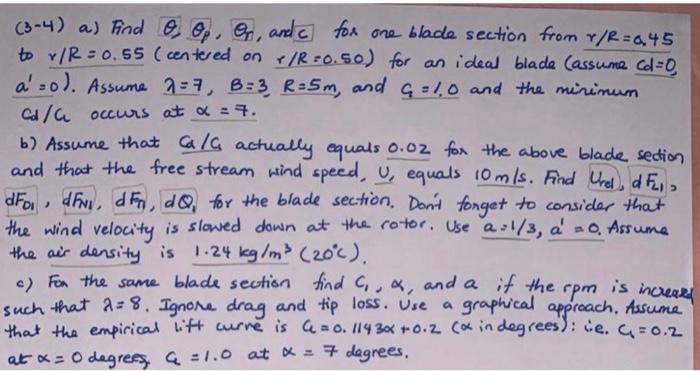 (3-4) a) Find θ, θp, θT, and c for one blade section from r/R=0.45
to r/R = 0.55 (centered on r/R=0.50) for an ideal blade (assume Cd=0,
a'=0). Assume λ=7, B=3, R=5m, and Cl=1.0 and the minimum
Cd/Cl occurs at α = 7.
b) Assume that Cd/Cl actually equals 0.02 for the above blade section
and that the free stream wind speed, U, equals 10 m/s. Find Urel, dFL1,
dFD1, dFN1, dFT1, dQ, for the blade section. Don't forget to consider that
the wind velocity is slowed down at the rotor. Use a=1/3, a'=0. Assume
the air density is 1.24 kg/m³ (20°C).
c) For the same blade section find Cl, α, and a if the rpm is increased
such that λ=8. Ignore drag and tip loss. Use a graphical approach. Assume
that the empirical lift curve is Cl=0.1143α+0.2 (α in degrees): i.e. Cl=0.2
at α=0 degrees, Cl=1.0 at α = 7 degrees.